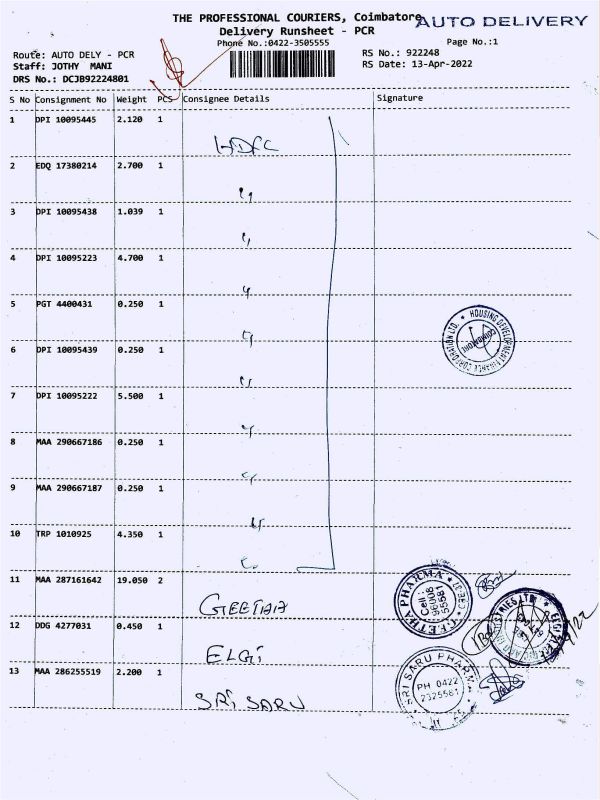 THE PROFESSIONAL COURIERS, Coimbatore
AUTO DELIVERY
Delivery Runsheet - PCR
Phone No.:0422-3505555
Page No.:1
Route: AUTO DELY - PCR
RS No.: 922248
Staff: JOTHY MANI
RS Date: 13-Apr-2022
DRS No.: DCJB92224801
S No Consignment No Weight PCS Consignee Details Signature
1 DPI 10095445 2.120 1
HDFC
2 EDQ 17380214 2.700 1
"
3 DPI 10095438 1.039 1
"
4 DPI 10095223 4.700 1
"
5 PGT 4400431 0.250 1
"
6 DPI 10095439 0.250 1
"
7 DPI 10095222 5.500 1
"
8 MAA 290667186 0.250 1
"
9 MAA 290667187 0.250 1
"
10 TRP 1010925 4.350 1
HOUSING DEVELOPMENT FINANCE CORPORATION LTD.
11 MAA 287161642 19.050 2
GEETHA
GEETHA PHARMA
12 DDG 4277031 0.450 1
ELGI
13 MAA 286255519 2.200 1
SRI SARU
SRI SARU PHARMA
PH 0422
2325581